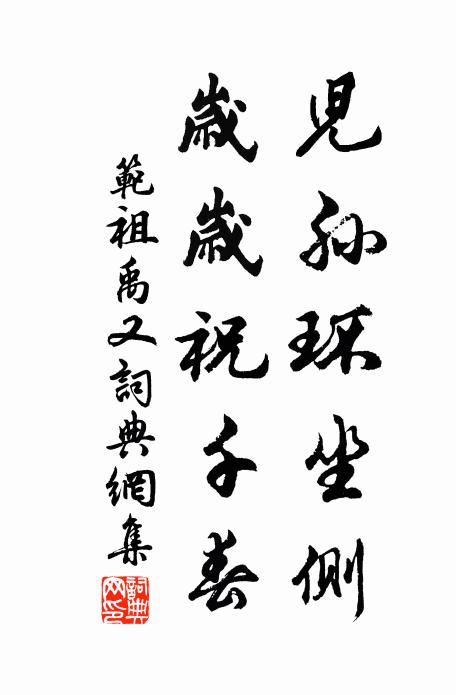 兒孫环坐側
歲歲祝千春
範祖禹又詞典網集
詞典網印